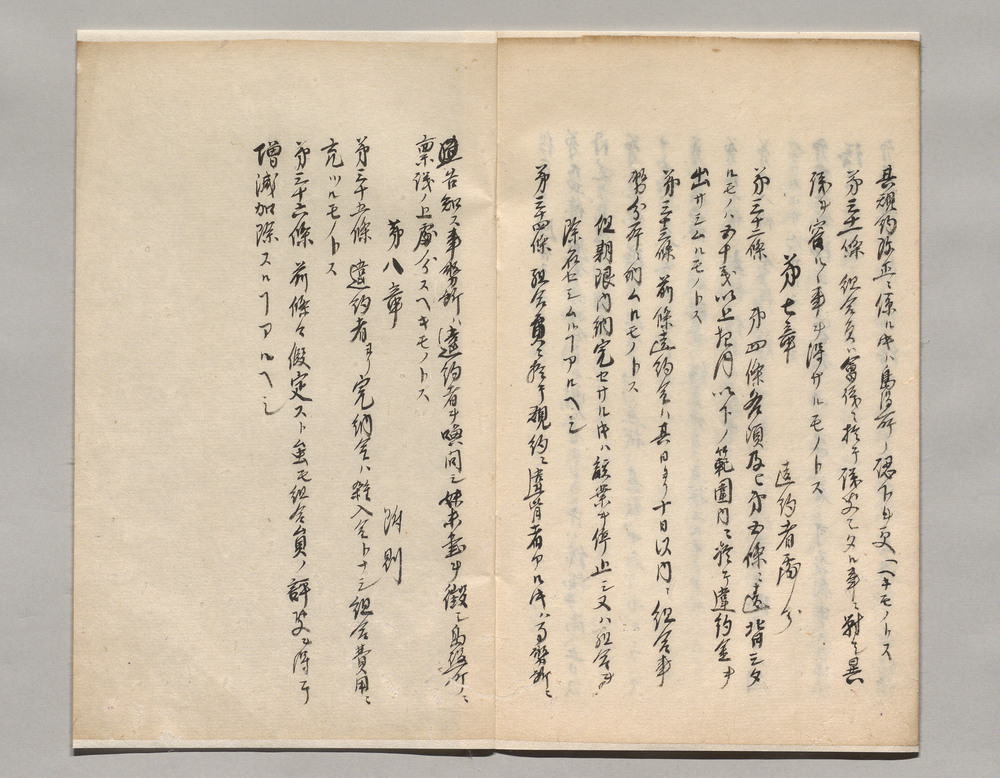 其規約改正ニ係ル件ハ島役所ノ認下ヲ更ヘキモノトス
第三十一條 組合員ハ會議ニ於テ議決シタル事ニ對シ異
議ヲ容ルヽ事ヲ得サルモノトス
第七章 違約者處分
第三十二條 第四條各項及ヒ第五條ニ違背シタ
ルモノハ五十戔以上 以下ノ範圍内ニ於テ違約金ヲ
出サシムルモノトス
第三十三條 前條違約金ハ其日ヨリ十日以内ニ組合事
務分所ヘ納ムルモノトス
但期限内納完セサル件ハ該業ヲ停止シ又ハ組合ヲ
除名セシムルヿアルヘシ
第三十四條 組合員ニ於テ規約ニ違背者アル件ハ事務所ニ
通告知ス事務所ハ違約者ヲ喚問シ始末書ヲ徴シ島役所ノ
禀議ノ上處分スヘキモノトス
第八章 附則
第三十五條 違約者ヨリ完納金ハ雜入金トナシ組合費用ニ
充ツルモノトス
第三十六條 前條々假定スト雖モ組合員ノ評决ヲ得テ
増減加除スルヿアルヘシ